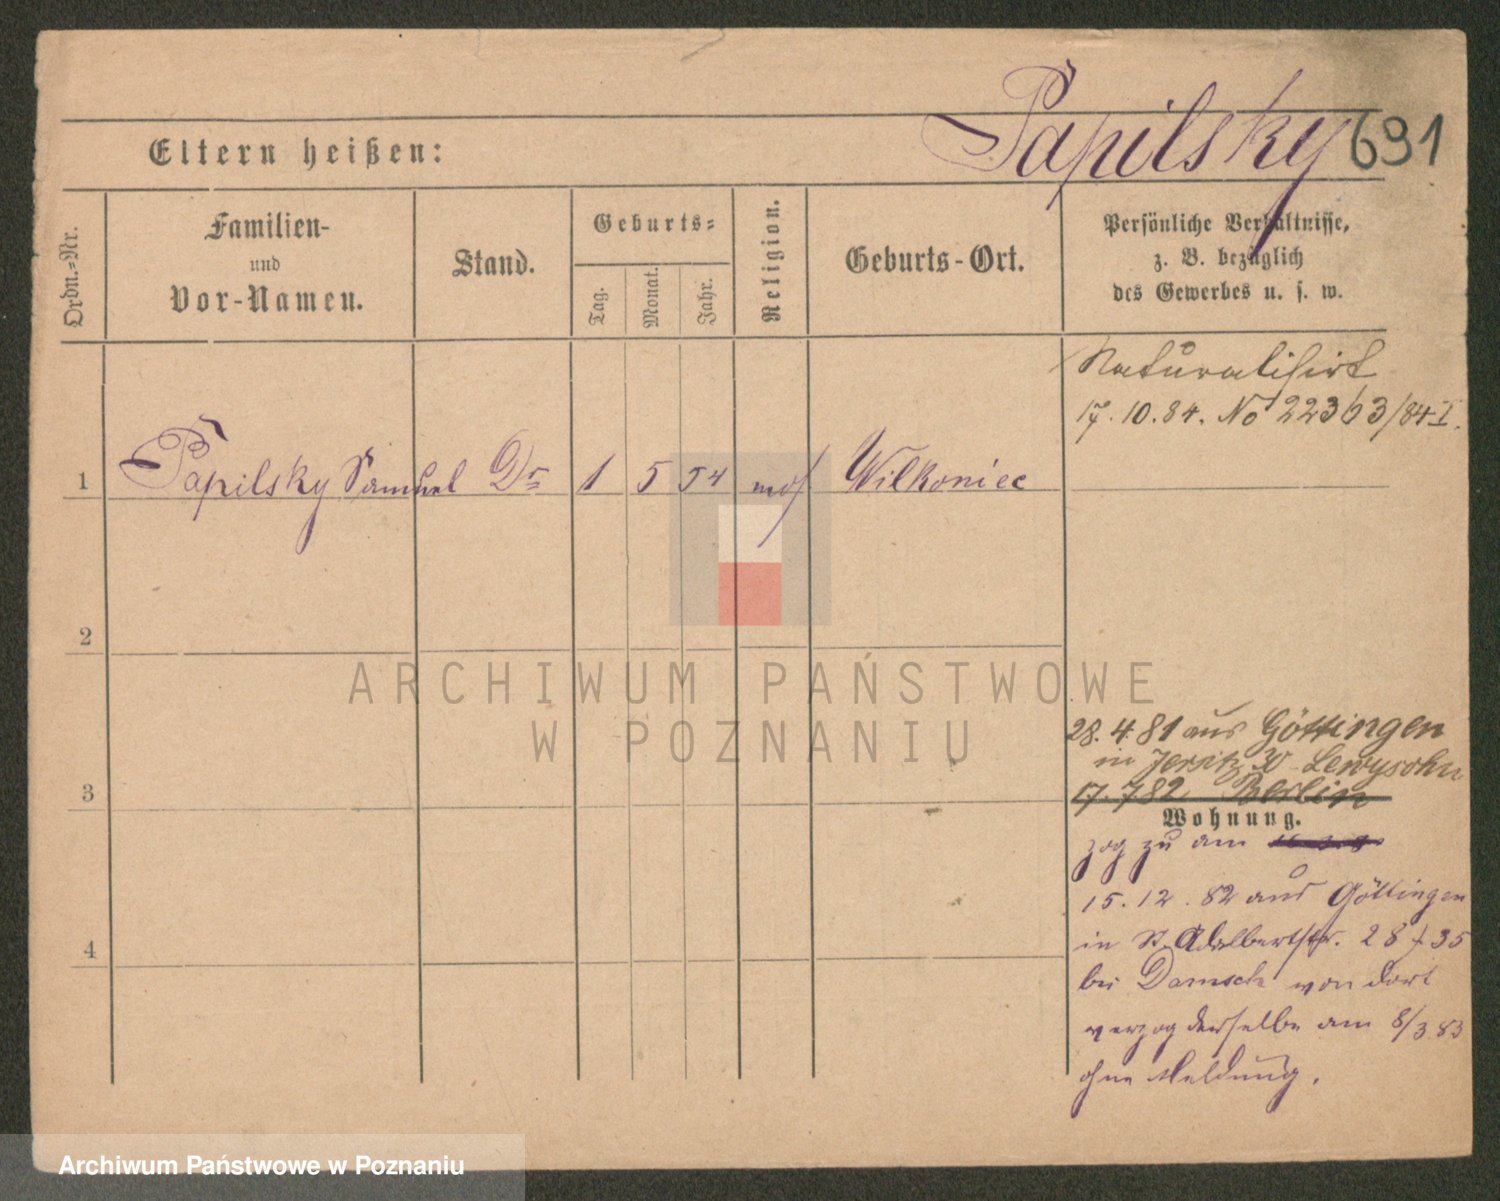 Papilsky
691
Eltern heißen:
Ordn.-Nr.
Familien-
und
Vor-Namen.
Stand.
Geburts-
Tag.
Monat.
Jahr.
Religion.
Geburts-Ort.
Persönliche Verhältnisse,
z. B. bezüglich
des Gewerbes u. s. w.
Naturalisirt
17.10.84. No 22363/84 I.
1 Papilsky Samuel Dr 1 5 54 mos Wilkoniec
2
3
4
28.4.81 aus Göttingen
in Jersitz 30 Lewysohn
17.7 82 Berlin
Wohnung.
zog zu am
15.12.82 aus Göttingen
in St. Adalbertstr. 28/35
bei Damsch von dort
verzog derselbe am 8/3 83
ohne Meldung.
ARCHIWUM PAŃSTWOWE
W POZNANIU
Archiwum Państwowe w Poznaniu